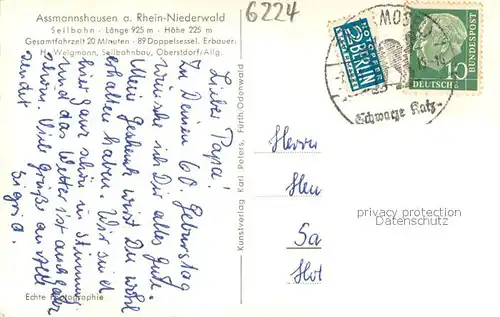 Assmannshausen a. Rhein-Niederwald
Seilbahn - Länge 925 m - Höhe 225 m
Gesamtfahrzeit 20 Minuten - 89 Doppelsessel. Erbauer:
H. Weigmann, Seilbahnbau, Oberstdorf/Allg.
6224
Lieber Papa!
Zu Deinem 60. Geburtstag
wünsche ich Dir alles Gute.
Mein Geschenk wirst Du wohl
erhalten haben. Wir sind
hier ganz schön in Stimmung
und das Wetter ist auch ganz
schön. Viel Grüße an alle
sendet
Sigrid.
Echte Photographie
Kunstverlag Karl Peters, Fürth/Odenwald
NOTOPFER
2 BERLIN
STEUERMARKE
MOS
Schwarze Katz-
DEUTSCHE
BUNDESPOST
10
Herrn
Hei
Sa
privacy protection
watermark